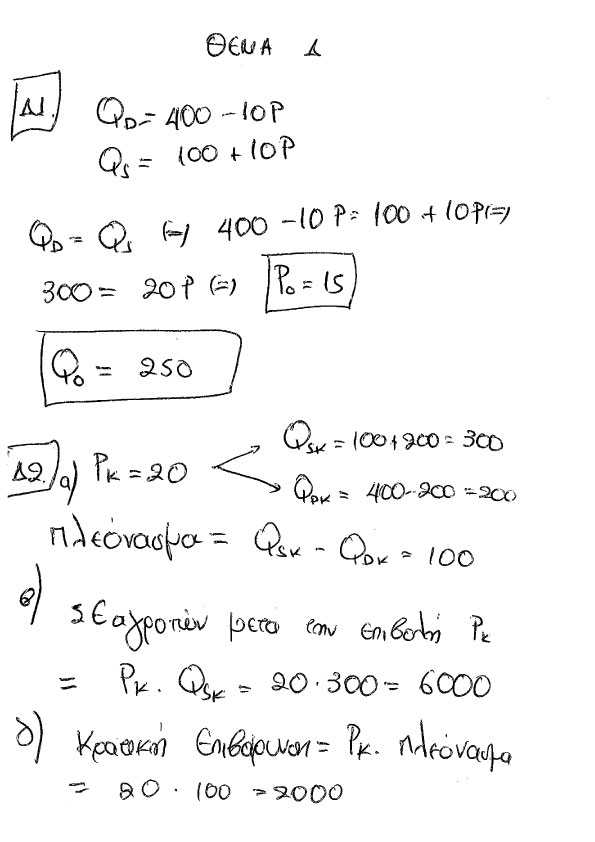 ΘΕΜΑ Δ
Δ1. Q_D = 400 - 10P
Q_S = 100 + 10P
Q_D = Q_S (=) 400 - 10P = 100 + 10P (=)
300 = 20P (=) P_0 = 15
Q_0 = 250
Δ2. α) P_K = 20
Q_SK = 100 + 200 = 300
Q_DK = 400 - 200 = 200
πλεόνασμα = Q_SK - Q_DK = 100
β)
ΣΕ αγροτών μετά την επιβολή P_K
= P_K . Q_SK = 20 . 300 = 6000
δ) Κρατική Επιβάρυνση = P_K . πλεόνασμα
= 20 . 100 = 2000